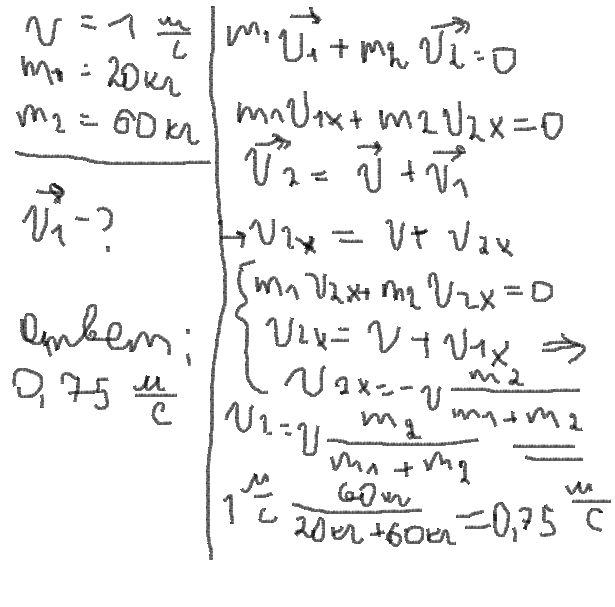 v = 1 м/с
m₁ = 20 кг
m₂ = 60 кг
v⃗₁ - ?
Ответ:
0,75 м/с
m₁v⃗₁ + m₂v⃗₂ = 0
m₁v₁ₓ + m₂v₂ₓ = 0
v⃗₂ = v⃗ + v⃗₁
→ v₂ₓ = v + v₂ₓ
{ m₁v₂ₓ + m₂v₂ₓ = 0
v₂ₓ = v + v₁ₓ ⇒
v₂ₓ = -v m₂/(m₁ + m₂)
v₂ = v m₂/(m₁ + m₂)
1 м/с 60 кг/(20 кг + 60 кг) = 0,75 м/с